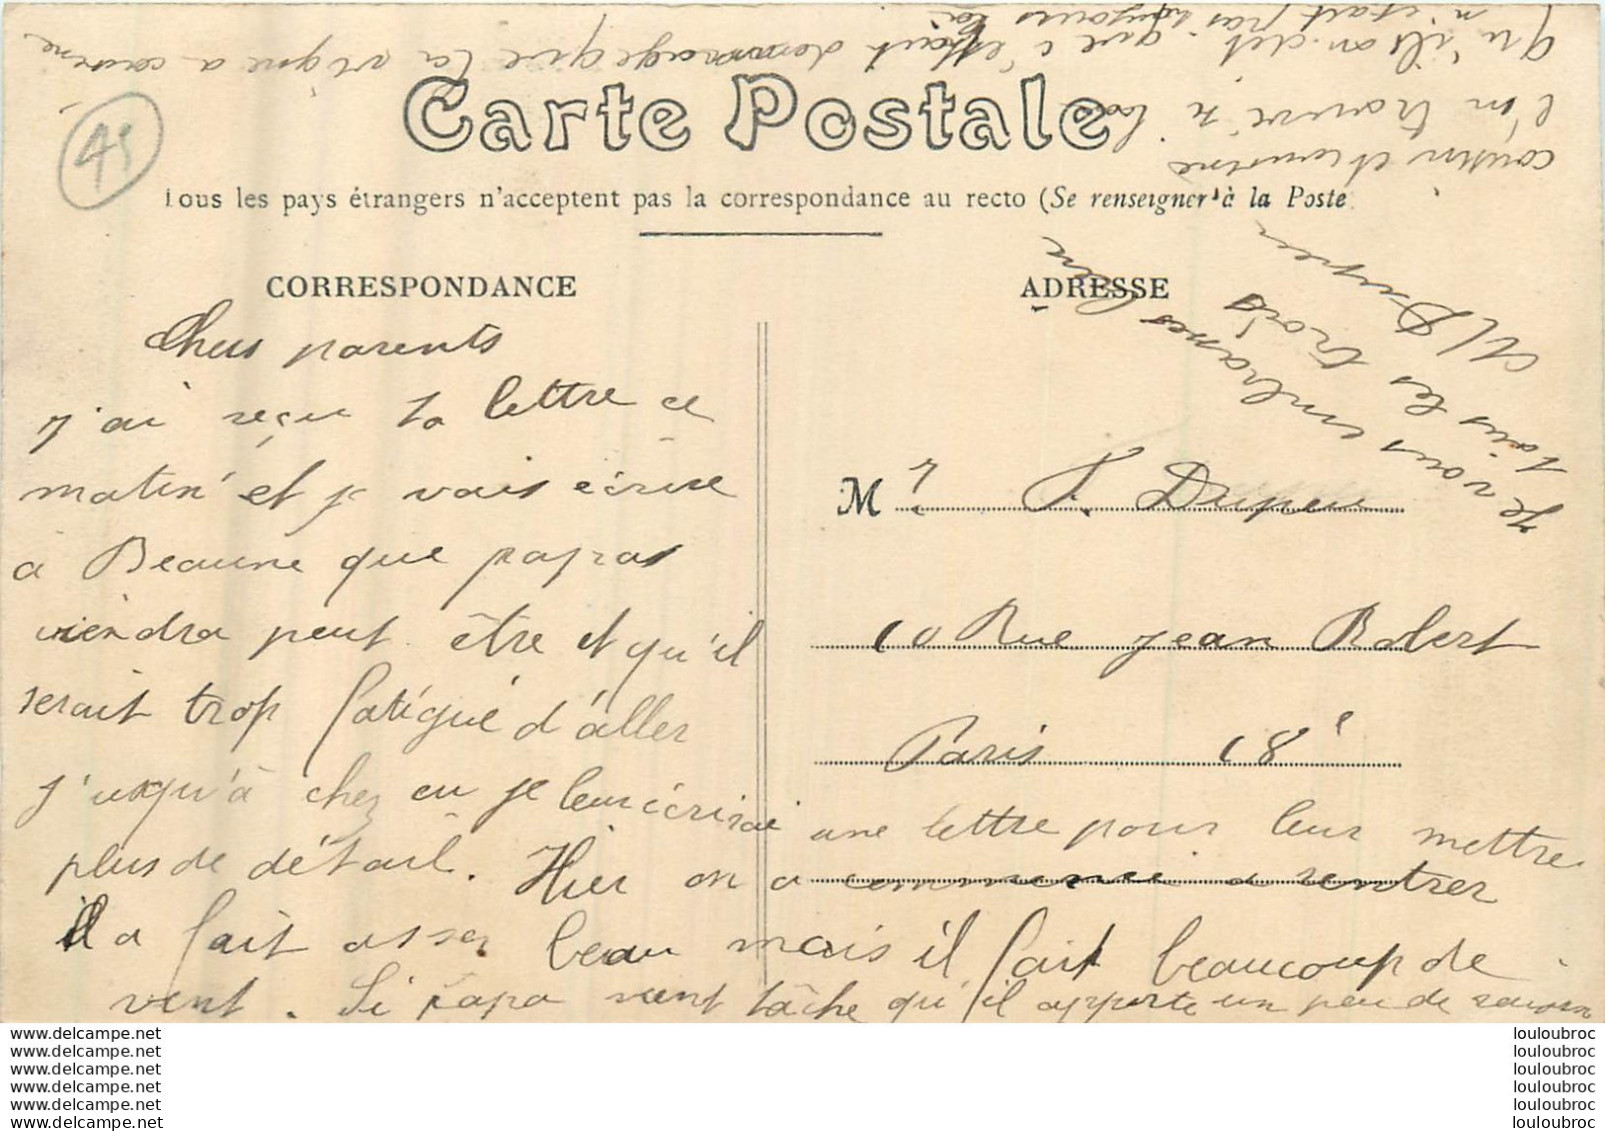 45
Carte Postale
Tous les pays étrangers n'acceptent pas la correspondance au recto (Se renseigner à la Poste
CORRESPONDANCE
ADRESSE
Chers parents
j'ai reçu ta lettre ce
matin et je vais écrire
à Beaune que papa
viendra peut être et qu'il
serait trop fatigué d'aller
j'usqu'à chez eu je leur écrirai une lettre pour leur mettre
plus de détail. Hier on a commencé a rentrer
il a fait assez beau mais il fait beaucoup de
vent. Si papa vient tâche qu'il apporte un peu de
cousin et cousine
l'on trouvé n bon
qu'ils on dit que c'était dommage que la vigne a
n'était pas toujours
Je vous embrasses bien
tous les trois
M Dupeu
Mr P. Dupeu
10 Rue Jean Robert
Paris 18e
www.delcampe.net
www.delcampe.net
www.delcampe.net
www.delcampe.net
www.delcampe.net
www.delcampe.net
louloubroc
louloubroc
louloubroc
louloubroc
louloubroc
louloubroc